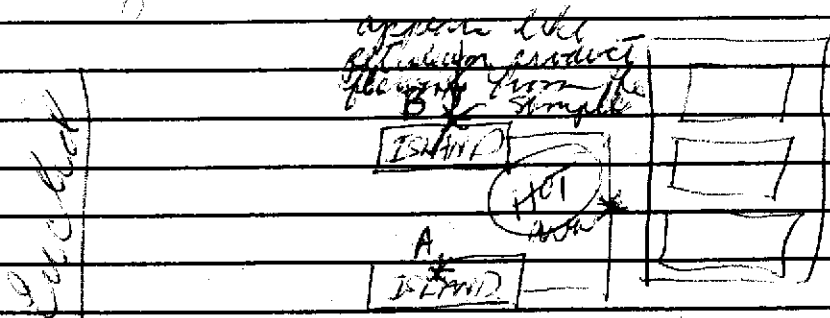 appears like
petroleum product
flowing from the
B sample
ISLAND
HOT
Area
A
ISLAND